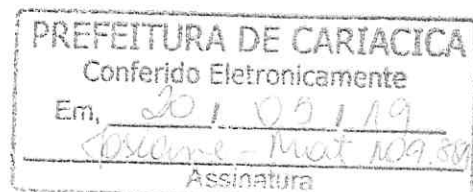 PREFEITURA DE CARIACICA
Conferido Eletronicamente
Em, 20 / 09 / 19
- Mat 109.889
Assinatura